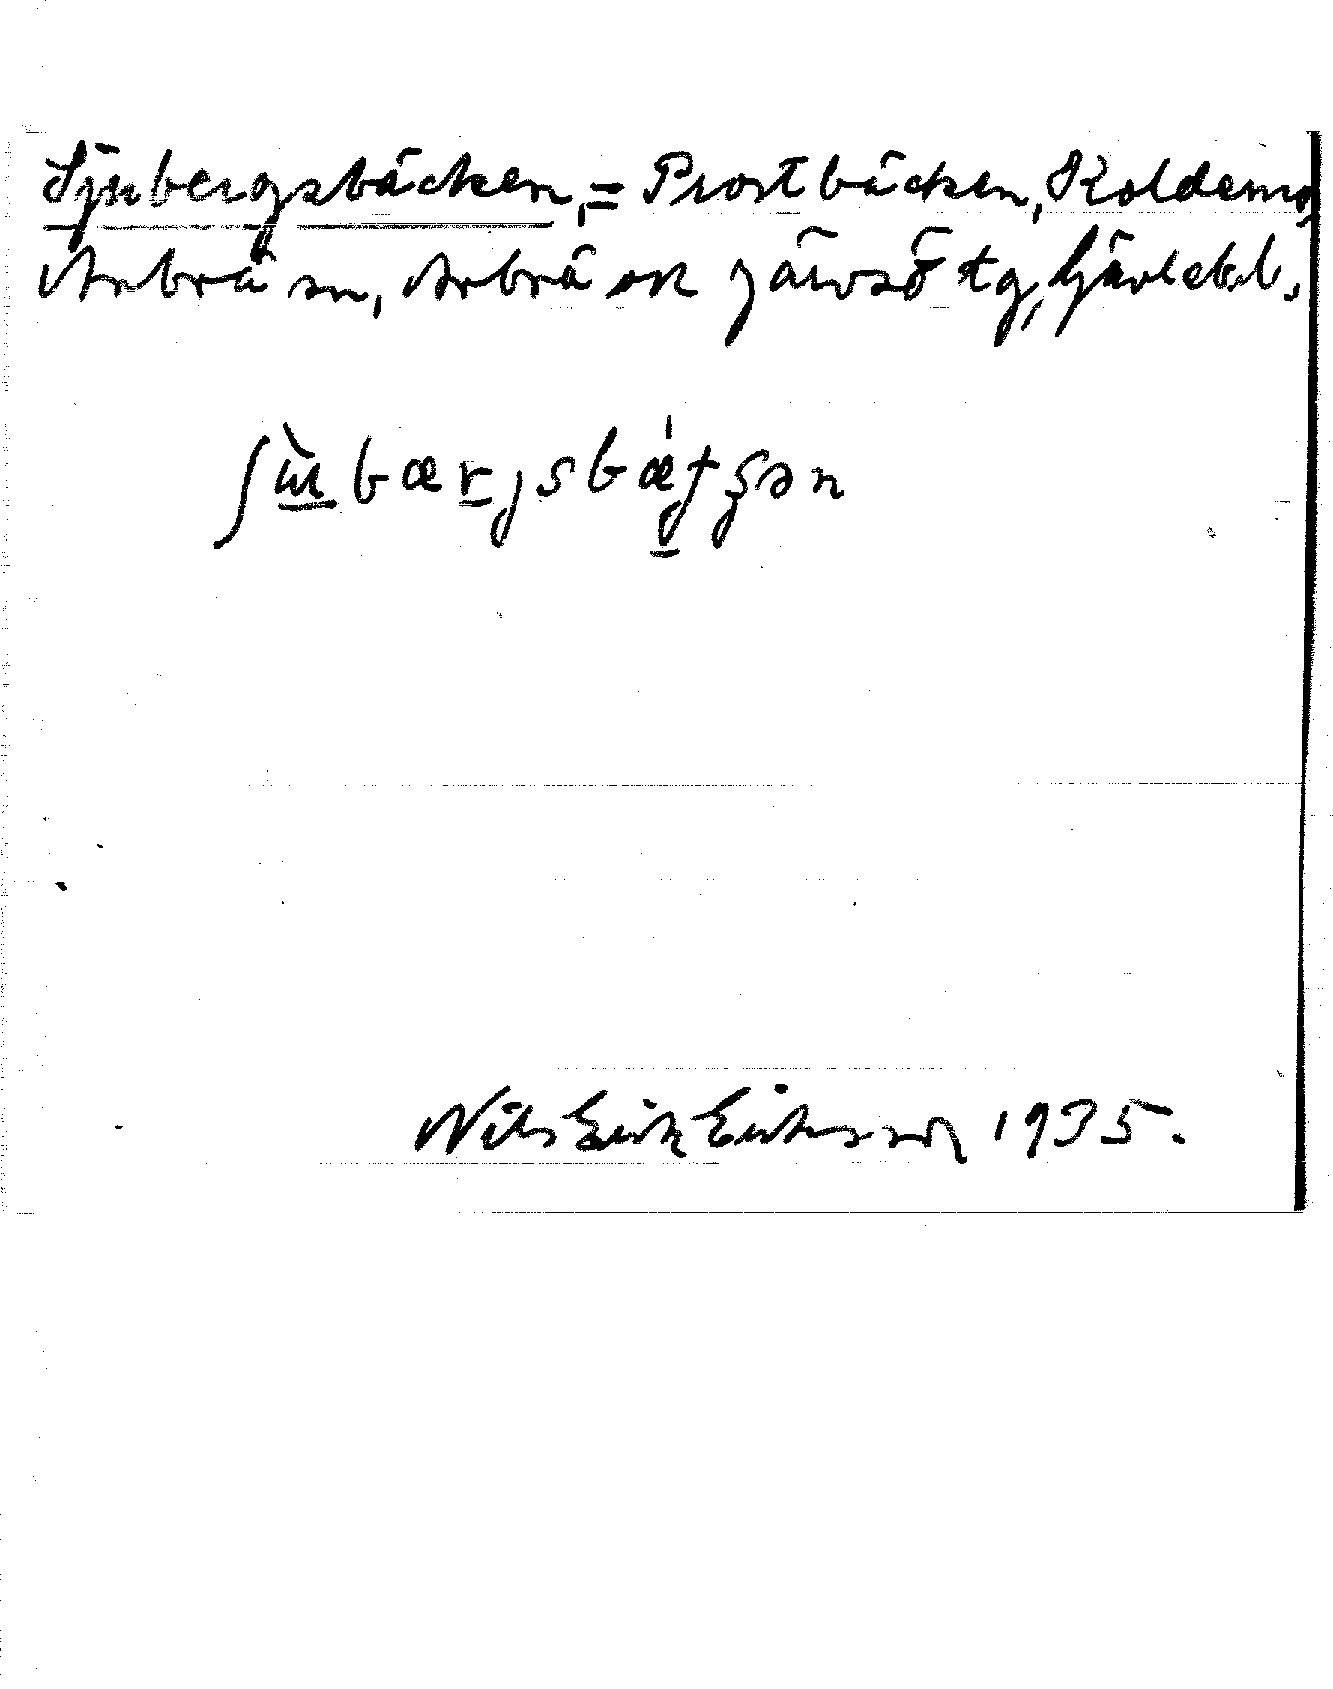 Sjubergsbäcken, = Prostbäcken, Koldemo,
Arbrå sn, Arbrå ok Järvsö tg, Gävleb.l.
ʃùbærjsbætʂən
Nils Erik Eriksson 1935.